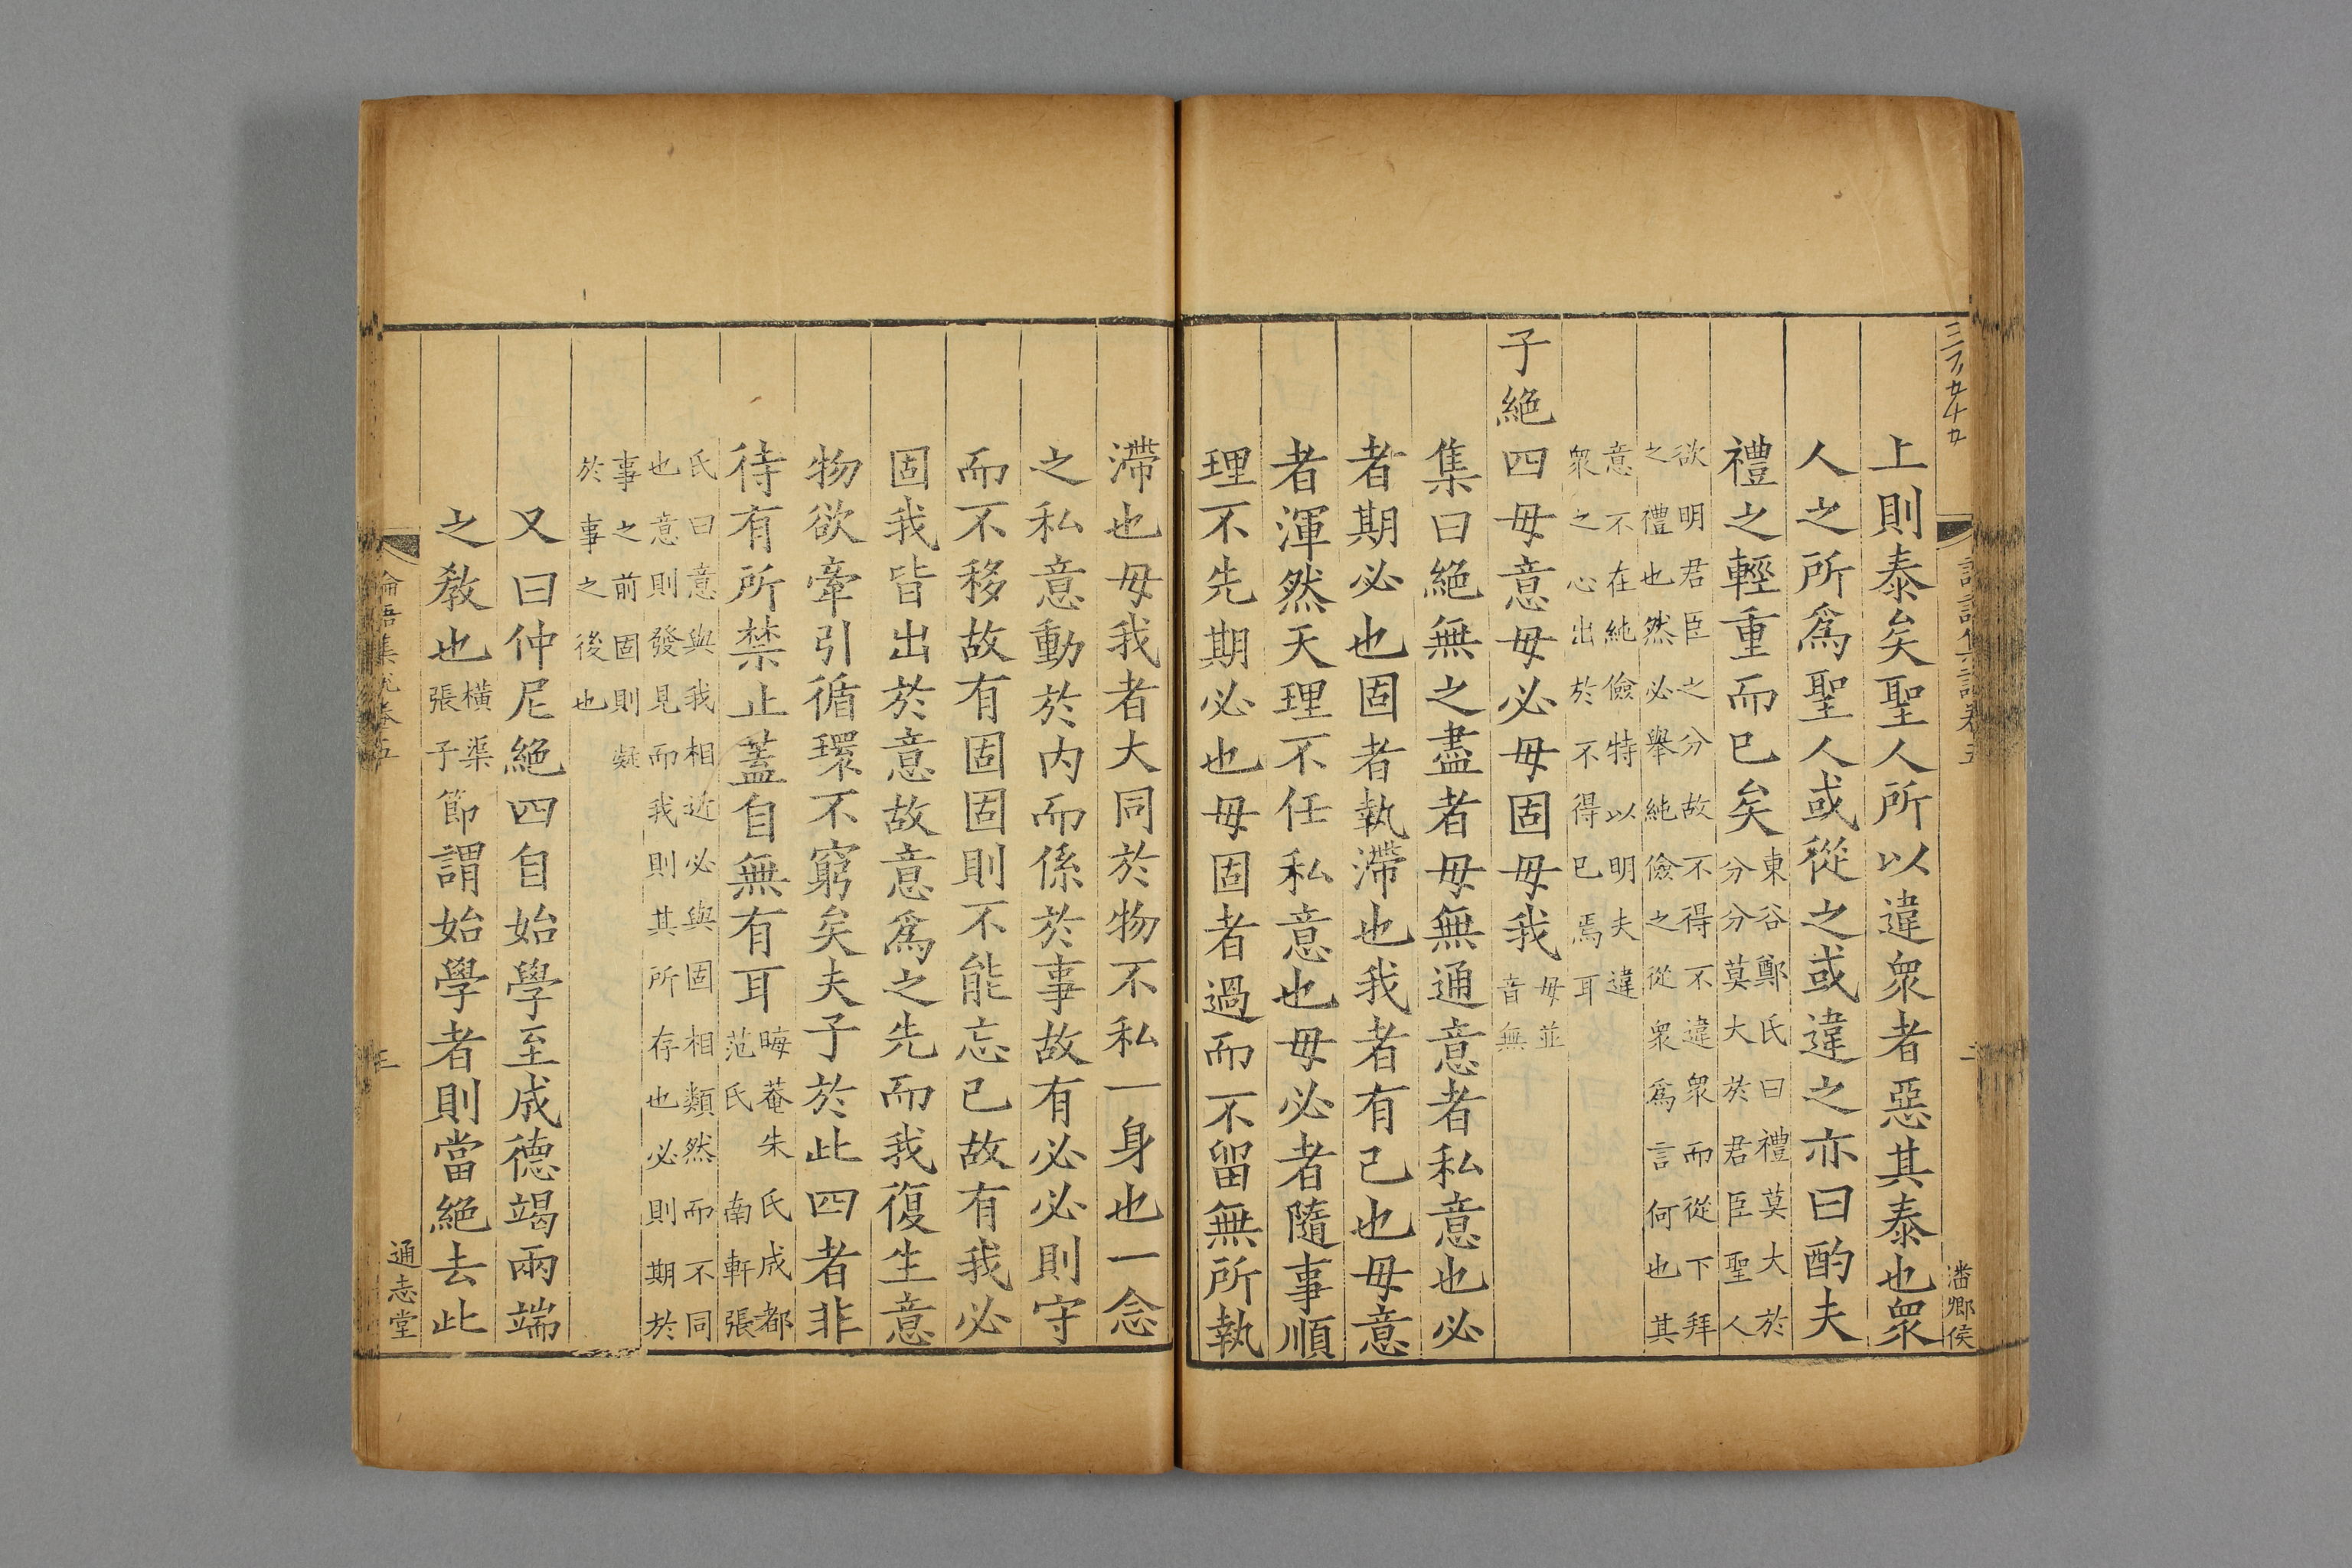 上則泰矣聖人所以違衆者惡其泰也衆
人之所爲聖人或從之或違之亦曰酌夫
禮之輕重而已矣東谷鄭氏曰禮莫大於
分分莫大於君臣聖人
欲明君臣之分故不得不違衆而從下拜
之禮也然必舉純儉之從衆爲言何也其
意不在純儉特以明夫違
衆之心出於不得已焉耳
子絶四毋意毋必毋固毋我毋並
音無
集曰絶無之盡者毋無通意者私意也必
者期必也固者執滯也我者有己也毋意
者渾然天理不任私意也毋必者隨事順
理不先期必也毋固者過而不留無所執
潘卿侯
滯也毋我者大同於物不私一身也一念
之私意動於内而係於事故有必必則守
而不移故有固固則不能忘己故有我必
固我皆出於意故意爲之先而我復生意
物欲牽引循環不窮矣夫子於此四者非
待有所禁止蓋自無有耳晦菴朱氏成都
范氏 南軒張
氏曰意與我相近必與固相類然而不同
也意則發見而我則其所存也必則期於
事之前固則凝
於事之後也
又曰仲尼絶四自始學至成德竭兩端
之教也橫渠
張子節謂始學者則當絶去此
論語集說卷五
三
通志堂